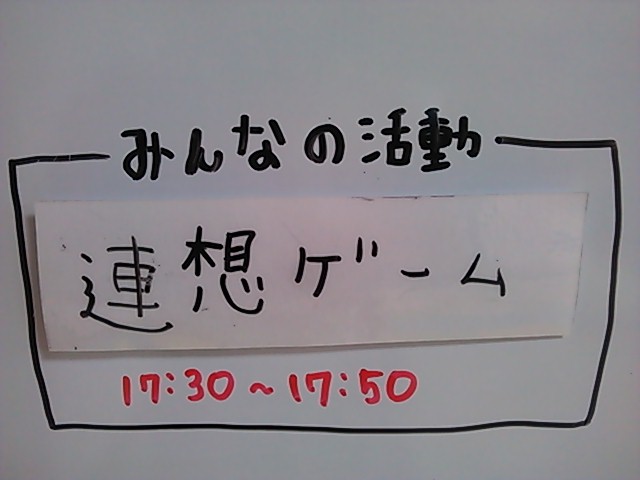 みんなの活動
連想ゲーム
17:30~17:50